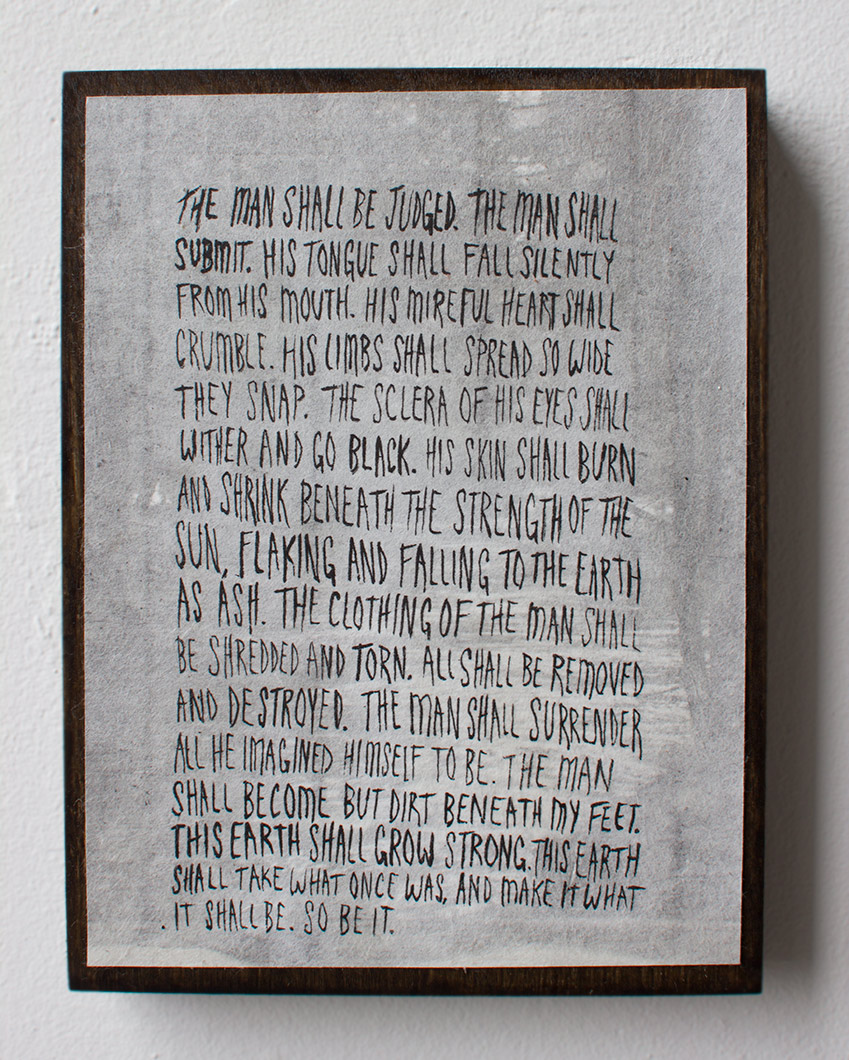 THE MAN SHALL BE JUDGED. THE MAN SHALL
SUBMIT. HIS TONGUE SHALL FALL SILENTLY
FROM HIS MOUTH. HIS MIREFUL HEART SHALL
CRUMBLE. HIS LIMBS SHALL SPREAD SO WIDE
THEY SNAP. THE SCLERA OF HIS EYES SHALL
WITHER AND GO BLACK. HIS SKIN SHALL BURN
AND SHRINK BENEATH THE STRENGTH OF THE
SUN, FLAKING AND FALLING TO THE EARTH
AS ASH. THE CLOTHING OF THE MAN SHALL
BE SHREDDED AND TORN. ALL SHALL BE REMOVED
AND DESTROYED. THE MAN SHALL SURRENDER
ALL HE IMAGINED HIMSELF TO BE. THE MAN
SHALL BECOME BUT DIRT BENEATH MY FEET.
THIS EARTH SHALL GROW STRONG. THIS EARTH
SHALL TAKE WHAT ONCE WAS, AND MAKE IT WHAT
. IT SHALL BE. SO BE IT.